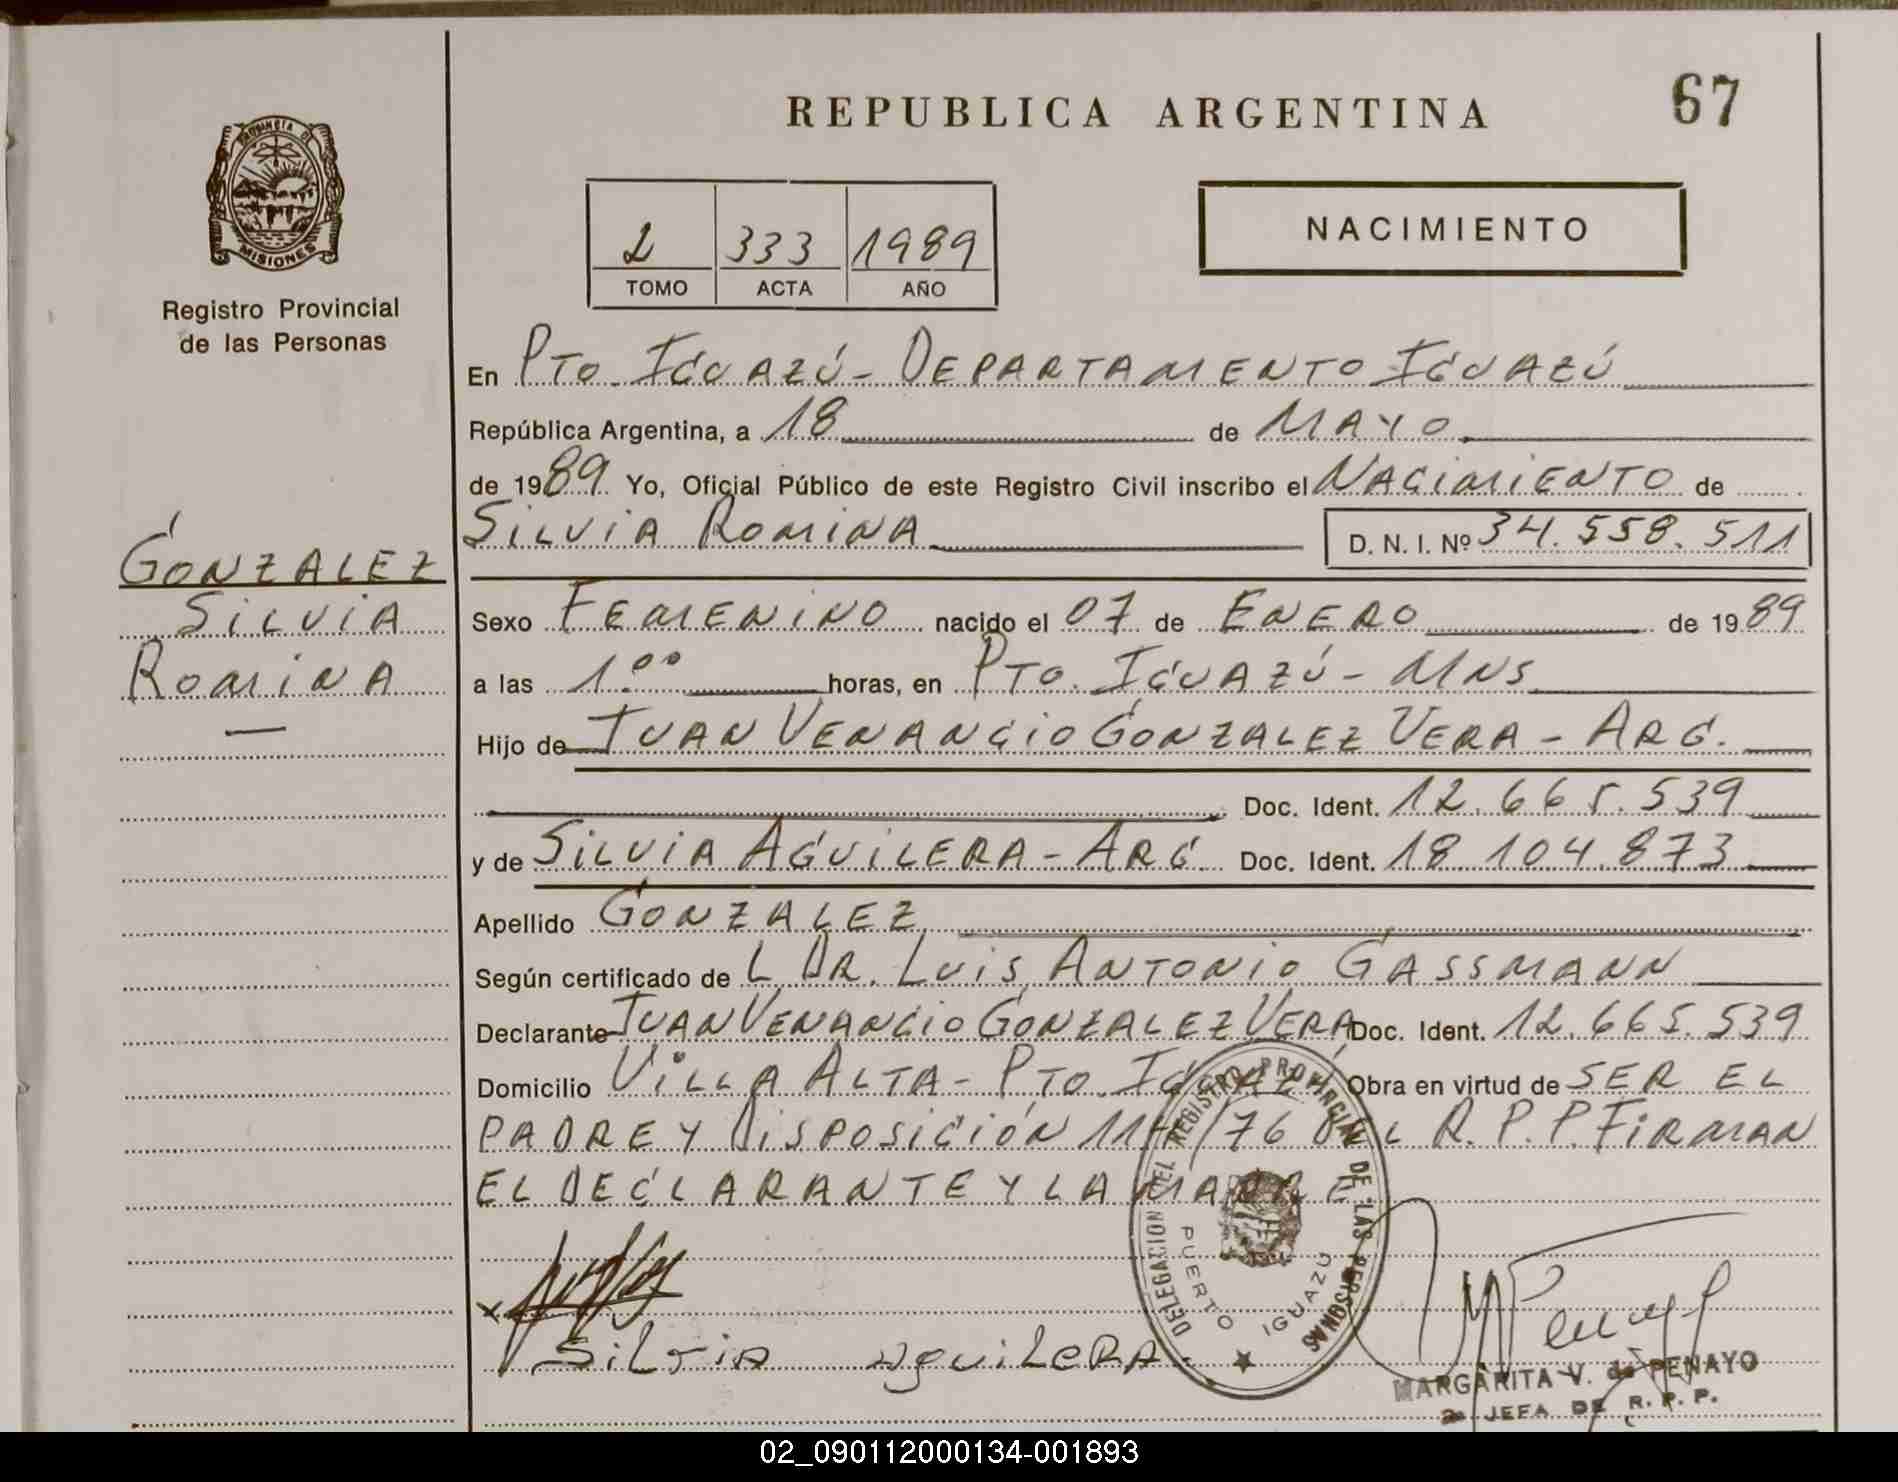 67
REPUBLICA ARGENTINA
PROVINCIA DE
MISIONES
Registro Provincial
de las Personas
2 333 1989
TOMO ACTA AÑO
NACIMIENTO
En PTO. IGUAZÚ - DEPARTAMENTO IGUAZÚ
República Argentina, a 18 de MAYO
de 1989 Yo, Oficial Público de este Registro Civil inscribo el NACIMIENTO de
SILVIA ROMINA D. N. I. Nº 34.558.511
GONZALEZ
SILVIA
ROMINA
Sexo FEMENINO nacido el 07 de ENERO de 1989
a las 1.00 horas, en PTO. IGUAZÚ - MNS
Hijo de JUAN VENANCIO GONZALEZ VERA - ARG.
Doc. Ident. 12.665.539
y de SILVIA AGUILERA - ARG. Doc. Ident. 18.104.873
Apellido GONZALEZ
Según certificado de L DR. LUIS ANTONIO GASSMANN
Declarante JUAN VENANCIO GONZALEZ VERA Doc. Ident. 12.665.539
Domicilio VILLA ALTA - PTO. IGUAZÚ Obra en virtud de SER EL
PADRE Y DISPOSICIÓN /76 DEL R.P.P. FIRMAN
EL DECLARANTE Y LA MADRE
DELEGACION DEL REGISTRO PROVINCIAL DE LAS PERSONAS
PUERTO IGUAZU
SiLViA AguiLeRA.
MARGARITA V. de PENAYO
JEFA DE R. P. P.
02_090112000134-001893